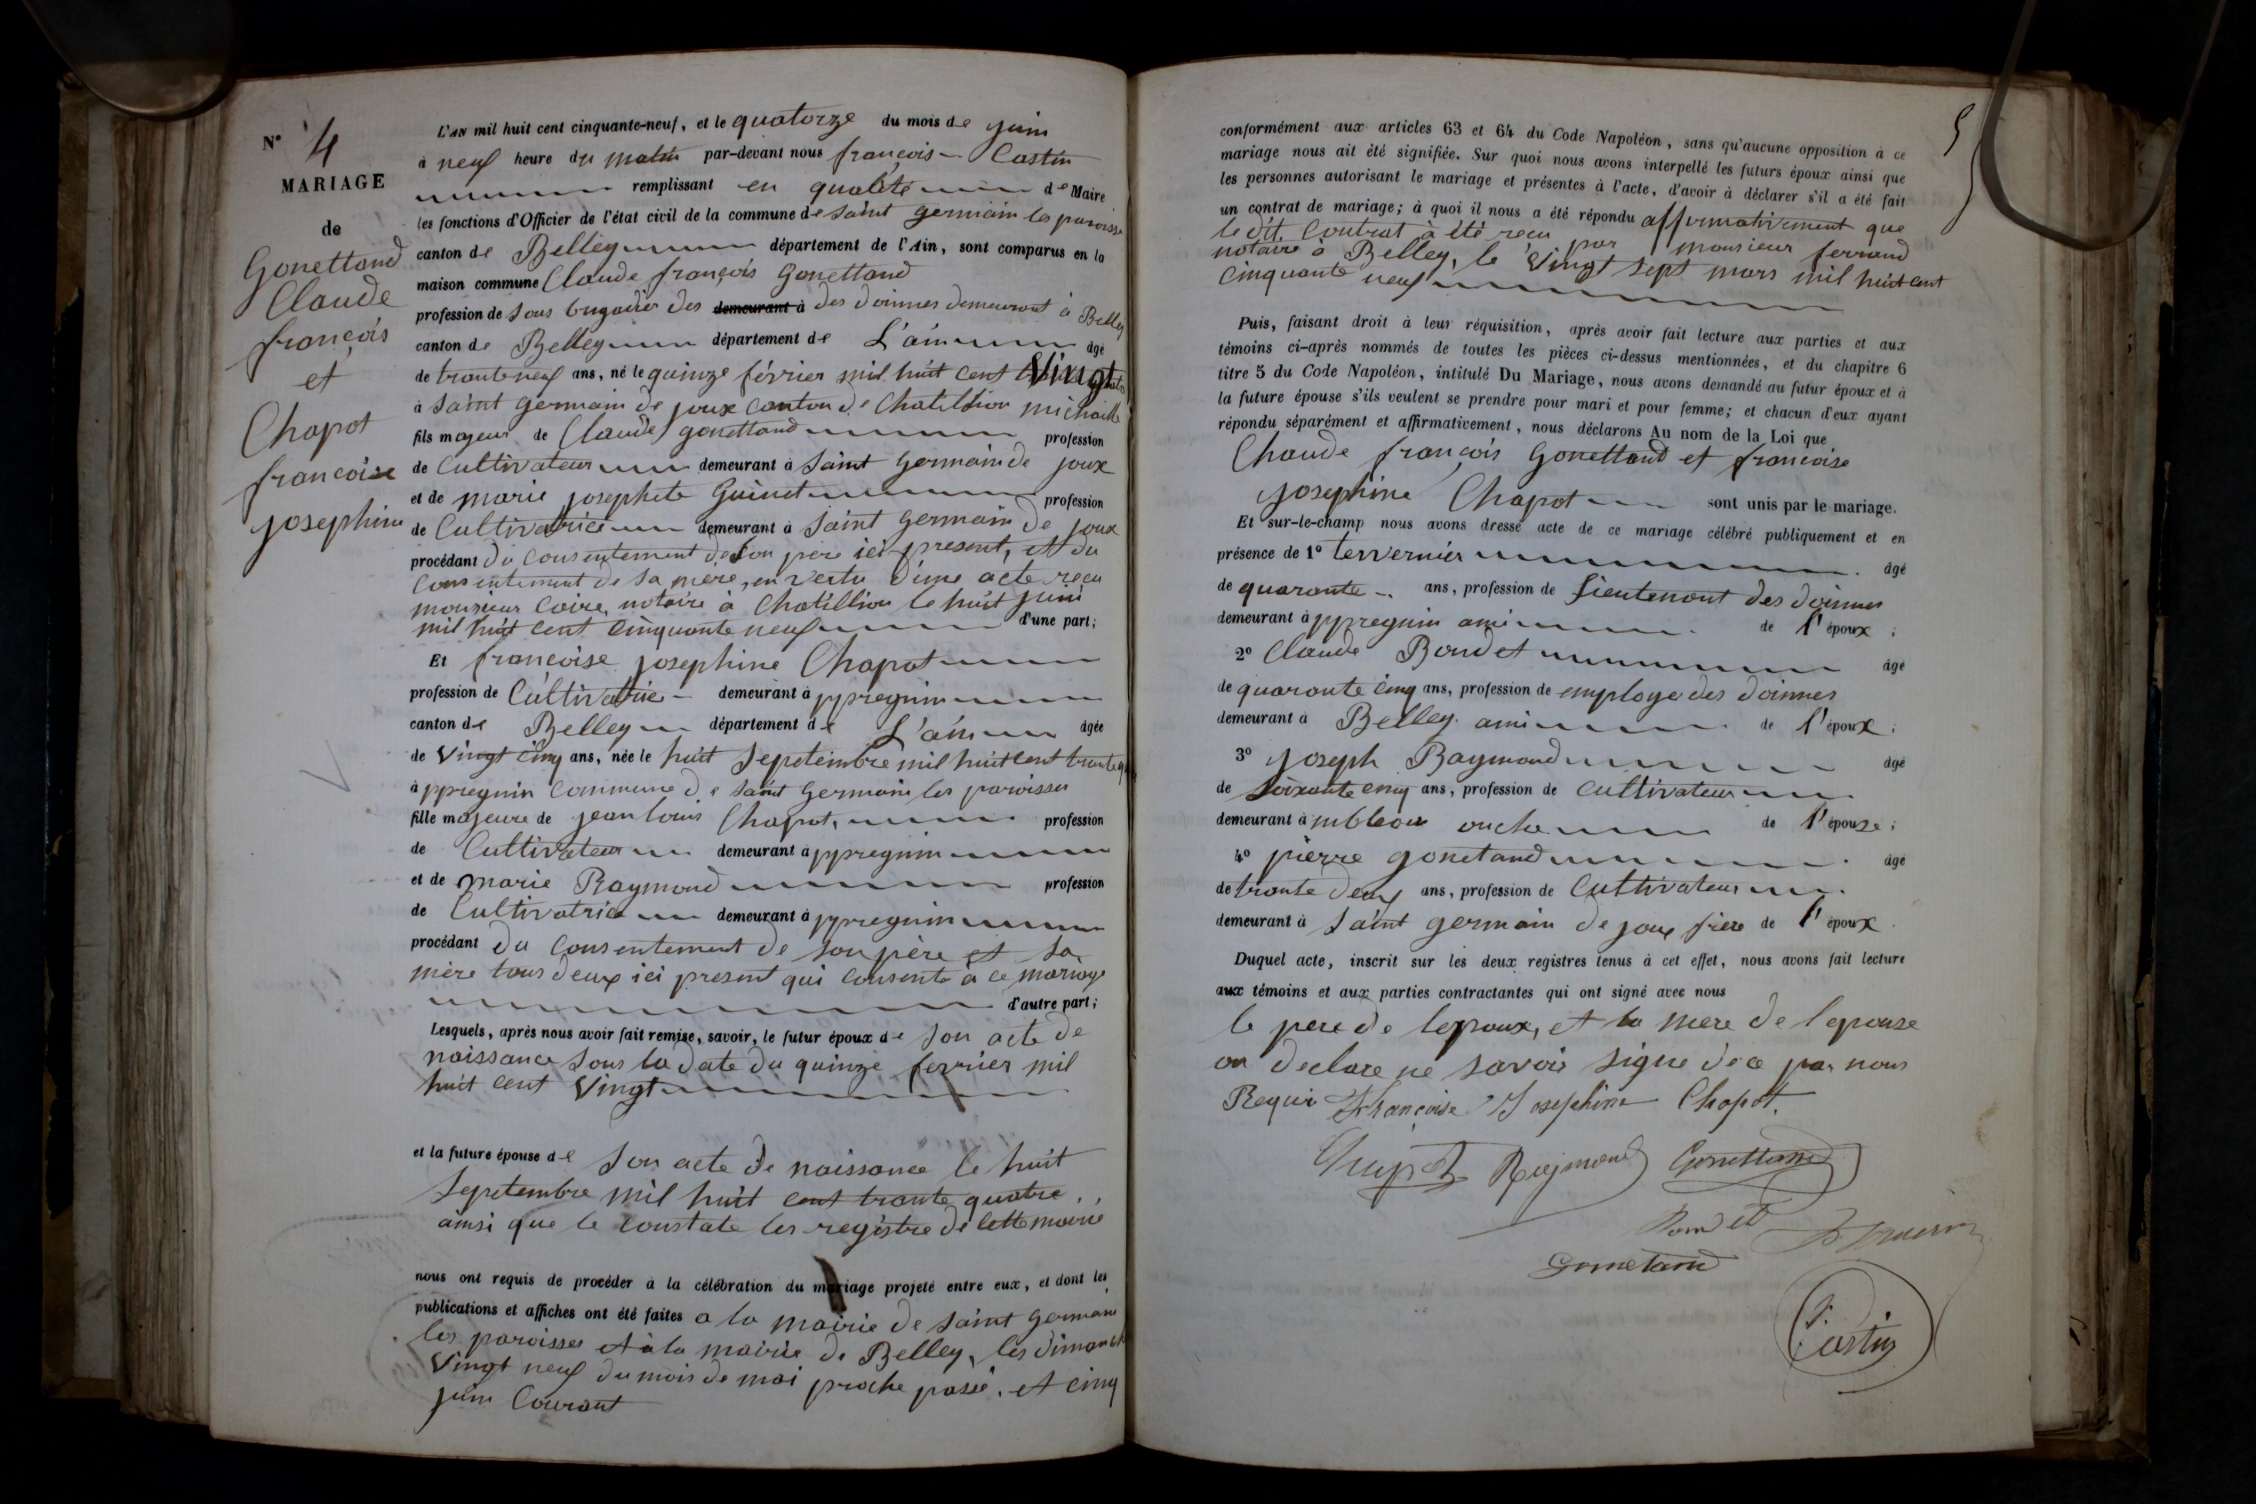 N° 4
MARIAGE
de
Gonettand
Claude
françois
et
Chapot
françoise
josephine
L'AN mil huit cent cinquante-neuf, et le quatorze du mois de juin
à neuf heure du matin par-devant nous françois Castin
remplissant en qualité de Maire
les fonctions d'Officier de l'état civil de la commune de saint germain les paroisse
canton de Belley département de l'Ain, sont comparus en la
maison commune Claude françois Gonettand
profession de sous brigadier des demeurant à des doinnes demeurant à Belley
canton de Belley département de L'ain âgé
de trente neuf ans, né le quinze février mil huit cent Vingt
à saint germain de joux canton de Chatillion michaille
fils majeur de Claude gonettand profession
de Cultivateur demeurant à saint germain de joux
et de marie josephete Guinet profession
de Cultivatrice demeurant à saint germain de joux
procédant du consentement de son père ici présent, et du
consentement de sa mère, en vertu d'une acte reçu
monsieur Coire, notaire à Chatillion le huit juin
mil huit cent cinquante neuf d'une part;
Et françoise josephine Chapot
profession de Cultivatrice demeurant à ppregnin
canton de Belley département de L'ain âgée
de Vingt cinq ans, née le huit septembre mil huit cent trente
à ppregnin Commune de saint germain les paroisses
fille majeure de jean louis Chapot, profession
de Cultivateur demeurant à ppregnin
et de marie Raymond profession
de Cultivatrice demeurant à ppregnin
procédant du consentement de son père et sa
mère tous deux ici present qui consente à ce mariage
d'autre part;
Lesquels, après nous avoir fait remise, savoir, le futur époux de son acte de
naissance sous la date du quinze fevrier mil
huit cent Vingt
et la future épouse de son acte de naissance le huit
septembre mil huit cent trante quatre
ainsi que le constate les registre de cette mairie
nous ont requis de procéder à la célébration du mariage projeté entre eux, et dont les
publications et affiches ont été faites a la mairie de saint Germain
les paroisses et à la mairie de Belley, les dimanche
Vingt neuf du mois de mai proche passé, et cinq
juin Courant
5
conformément aux articles 63 et 64 du Code Napoléon, sans qu'aucune opposition à ce
mariage nous ait été signifiée. Sur quoi nous avons interpellé les futurs époux ainsi que
les personnes autorisant le mariage et présentes à l'acte, d'avoir à déclarer s'il a été fait
un contrat de mariage; à quoi il nous a été répondu affirmativement que
le dit Contrat à été reçu par monsieur ferrand
notaire à Belley, le Vingt sept mars mil huit cent
Cinquante neuf
Puis, faisant droit à leur réquisition, après avoir fait lecture aux parties et aux
témoins ci-après nommés de toutes les pièces ci-dessus mentionnées, et du chapitre 6
titre 5 du Code Napoléon, intitulé Du Mariage, nous avons demandé au futur époux et à
la future épouse s'ils veulent se prendre pour mari et pour femme; et chacun d'eux ayant
répondu séparément et affirmativement, nous déclarons Au nom de la Loi que
Claude françois Gonettand et françoise
josephine Chapot sont unis par le mariage.
Et sur-le-champ nous avons dressé acte de ce mariage célébré publiquement et en
présence de 1° tervernier âgé
de quarante ans, profession de lieutenant des doinnes
demeurant à ppregnin ami de l'époux;
2° Claude Boudet âgé
de quarante cinq ans, profession de employe des doinnes
demeurant à Belley ami de l'époux;
3° joseph Raymond âgé
de soixante cinq ans, profession de cultivateur
demeurant à oncle de l'épouse;
4° pierre gonetand âgé
de trante deux ans, profession de Cultivateur
demeurant à saint germain de joux frère de l'époux
Duquel acte, inscrit sur les deux registres tenus à cet effet, nous avons fait lecture
aux témoins et aux parties contractantes qui ont signé avec nous
le pere de lepoux, et la mere de lepouse
on declare ne savoir signe de ce par nous
Requi Françoise Josephine Chapot.
Chapot Raymond Gonettand
Boudet
Gonetand
Castin